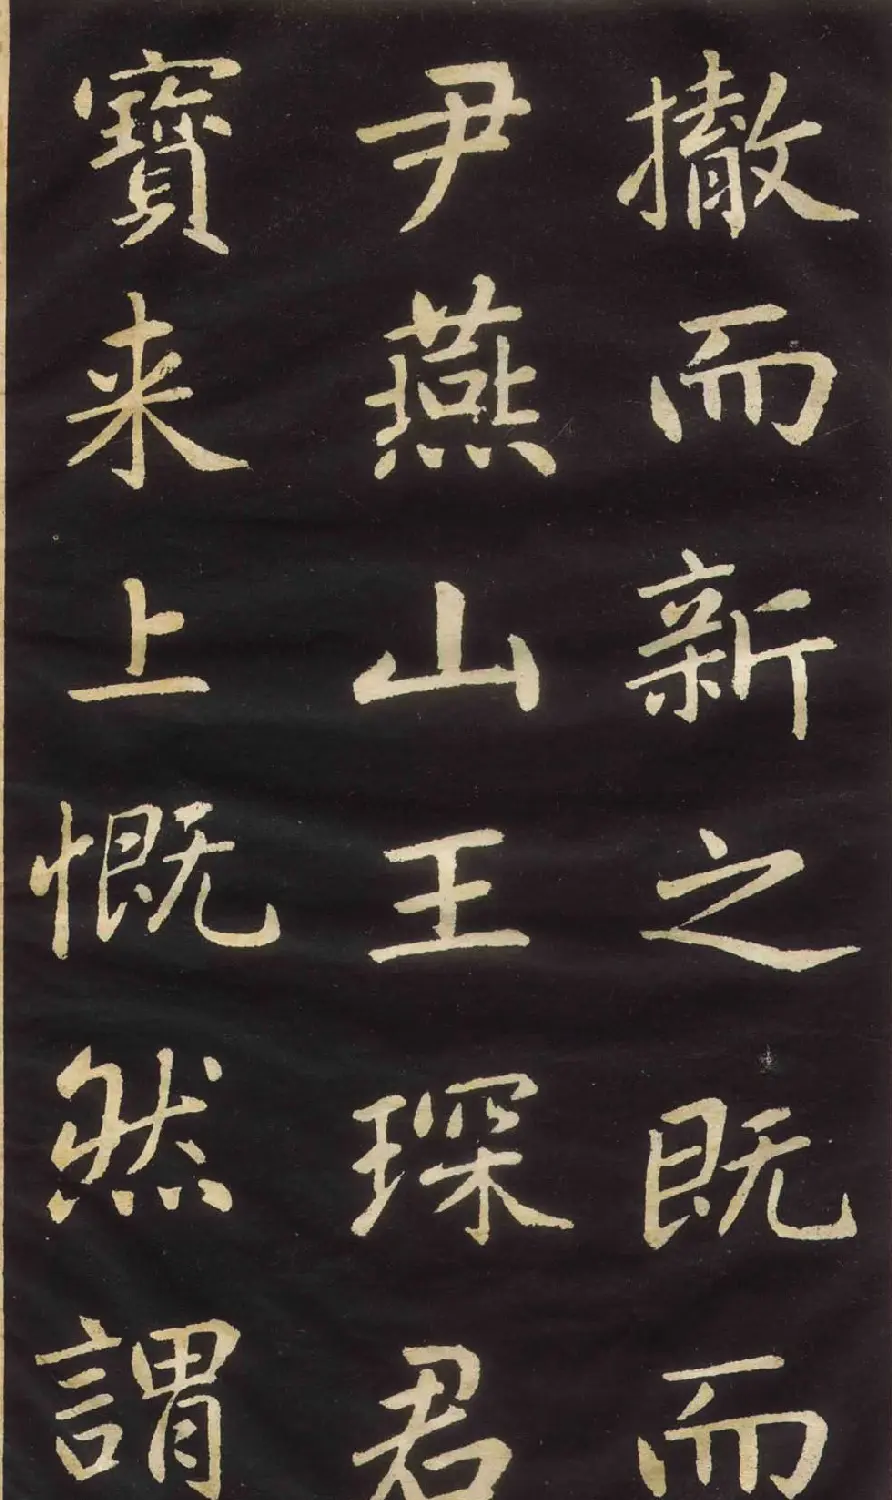 撤而新之既而
尹燕山王琛君
寶来上慨然謂